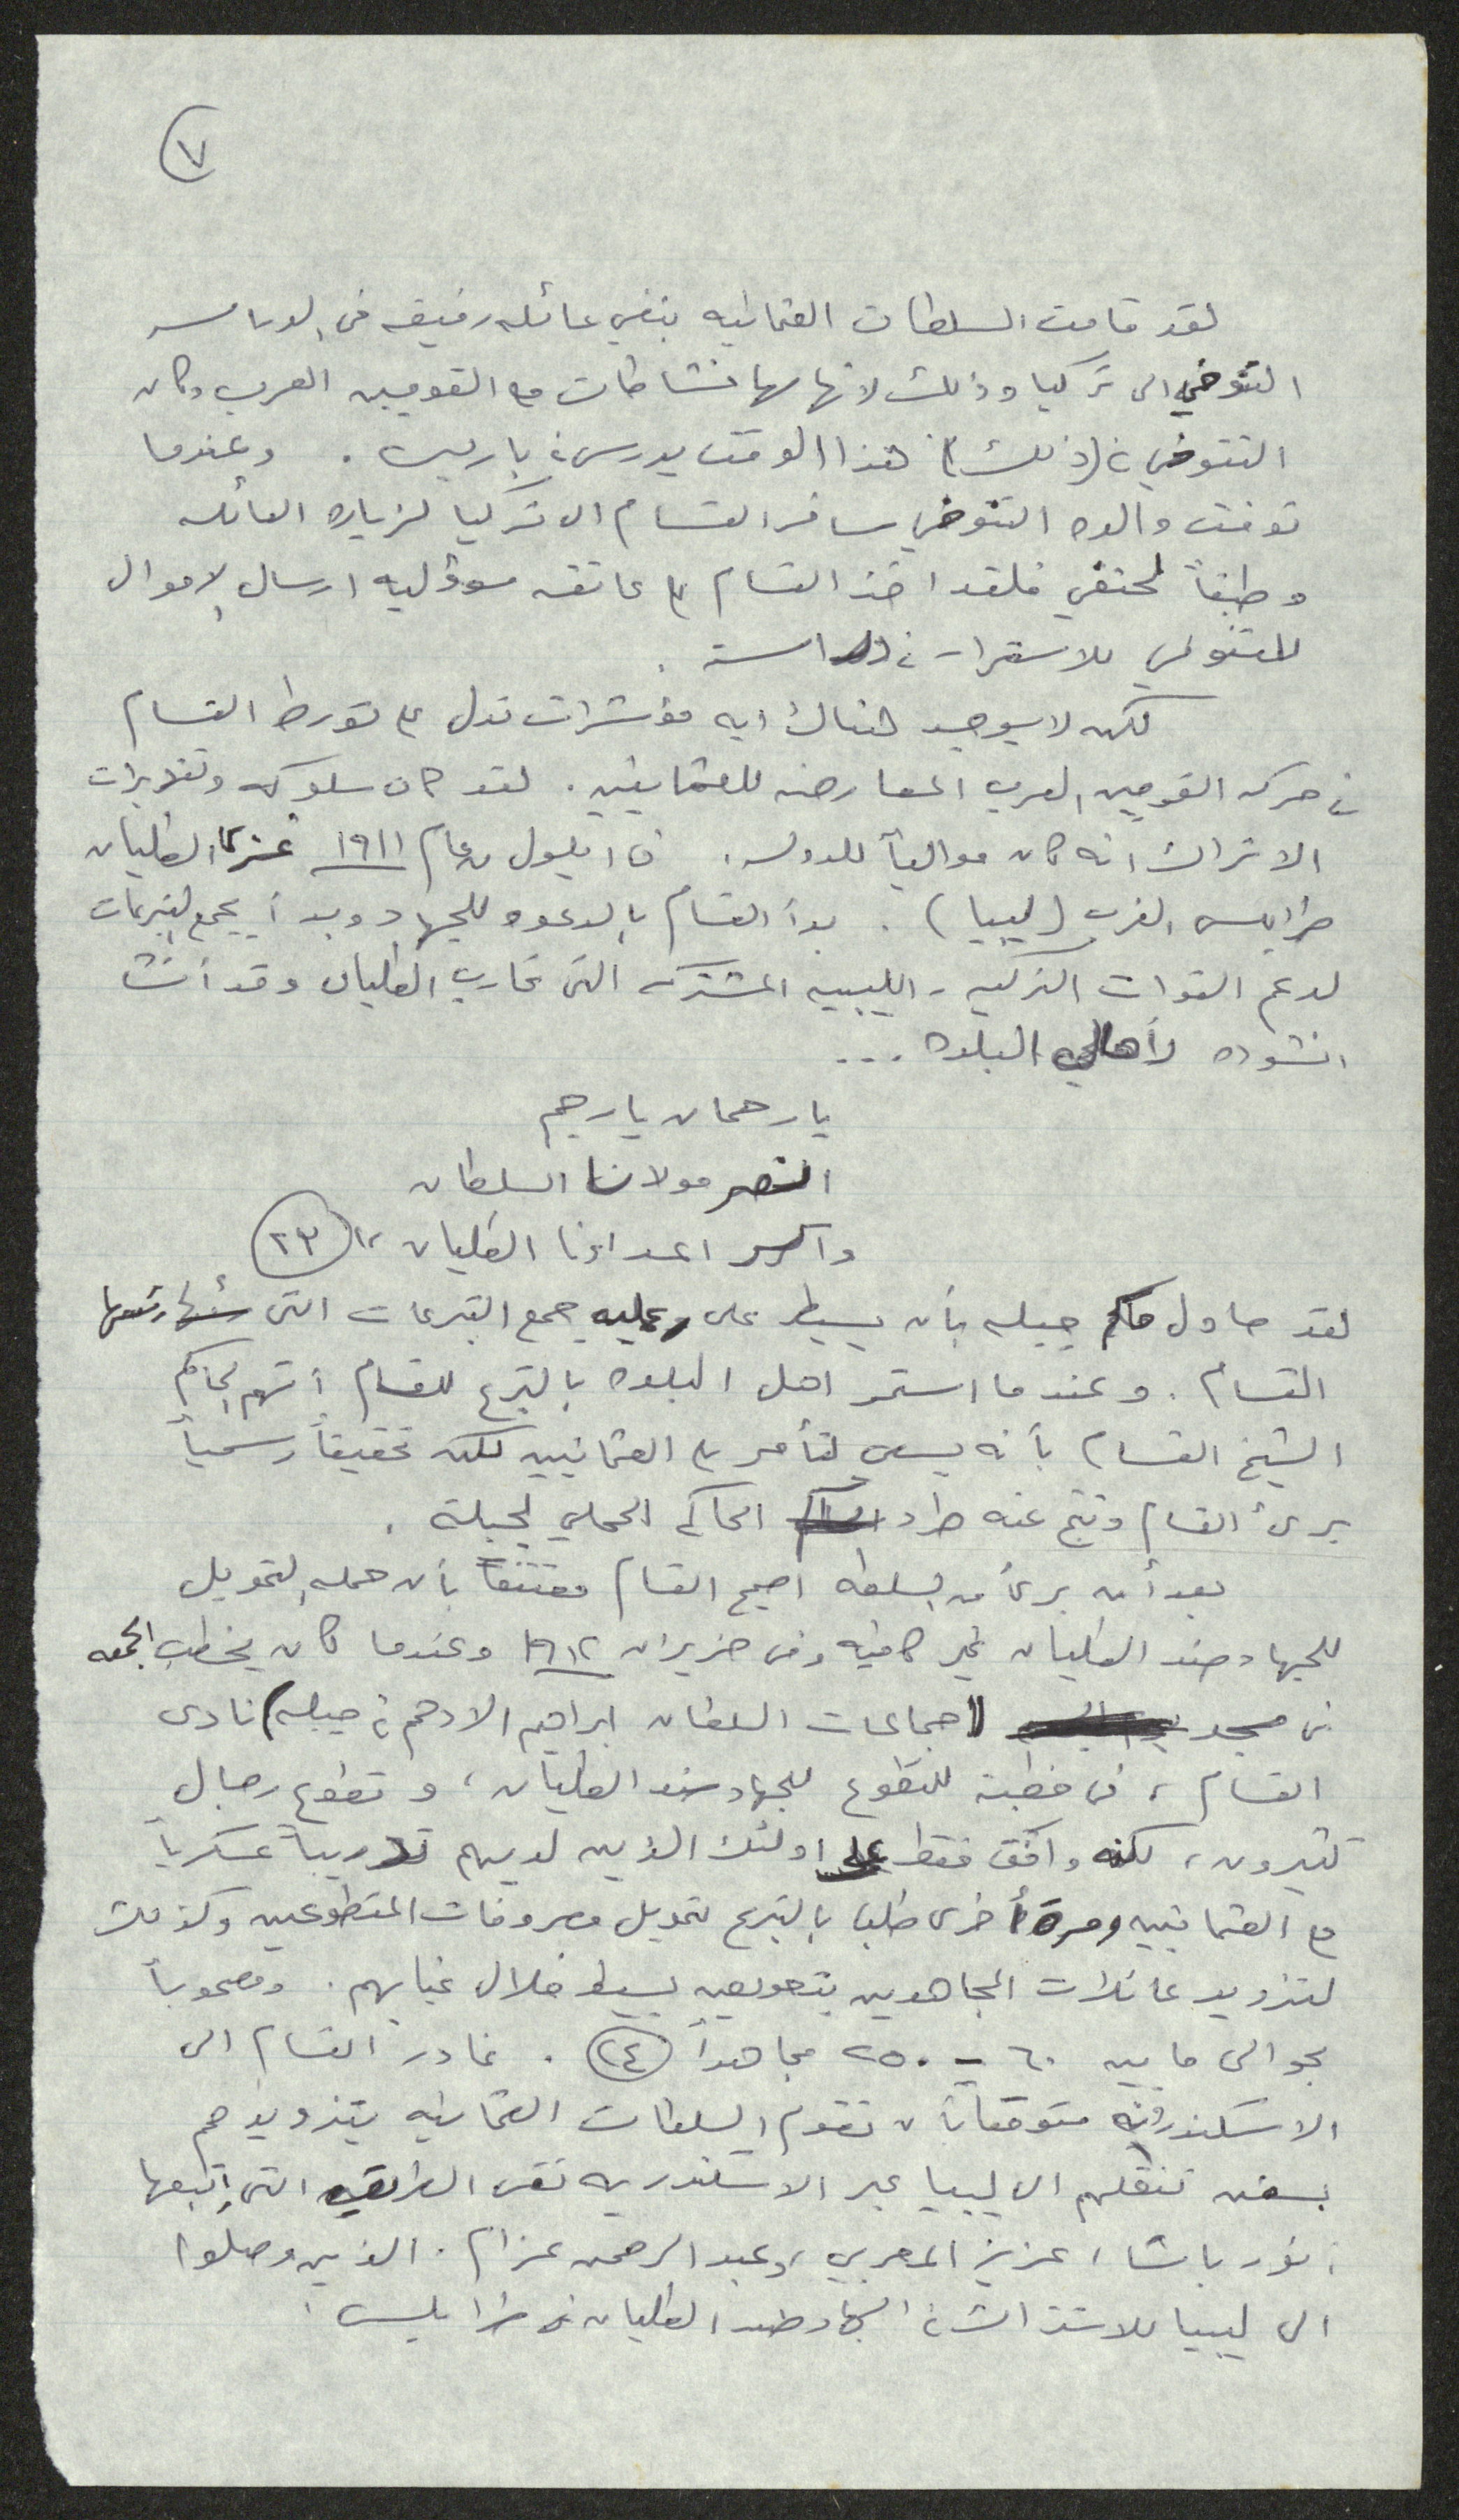 ٧
لقد قامت السلطات العثمانيه بنفي عائله رفيقه في الدراسه
التنوخي الى تركيا وذلك لانها لها نشاطات مع القوميين العرب وكان
التنوخي في (ذلك) هذا الوقت يدرس في باريس . وعندما
توفت والده التنوخي سافر القسام الى تركيا لزياره العائله
وطبقاً لحنفي فلقد اخذ القسام على عاتقه مسؤليه ارسال الاموال
للتنوخي للاستمرار في دراسته .
لكن لا يوجد هناك ايه مؤشرات تدل على تورط القسام
في حركه القوميين العرب المعارضه للعثمانيين . لقد كان سلوكه وتقديرات
الاتراك انه كان موالياً للدوله . في ايلول من عام ١٩١١ غزا الطليان
طرابلس الغرب (ليبيا) . بدأ القسام بالدعوه للجهاد وبدأ يجمع التبرعات
لدعم القوات التركيه - الليبيه المشتركه التي تحارب الطليان وقد أنشأ
انشوده لأهالي البلده ...
يا رحمان يا رحيم
انصر مولانا السلطان
واكسر اعداءنا الطليان " ٢٣
لقد حاول حاكم جبله بأن يسيطر على عمليه جمع التبرعات التي
القسام . وعندما استمر اهل البلده بالتبرع للقسام اتهم الحاكم
الشيخ القسام بأنه يسعى لتأمر على العثمانيين لكن تحقيقاً رسمياً
برئ القسام ونتج عنه طرد الحاكم المحلي لجبلة .
بعد أن برئ من السلطه اصبح القسام مقتنعاً بأن حمله التمويل
للجهاد ضد الطليان غير كافيه وفي حزيران ١٩١٢ وعندما كان يخطب الجمعه
في مسجد السلطان ابراهيم الادهم في جبله) نادى
القسام ، في خطبته للتطوع للجهاد ضد الطليان ، وتطوع رجال
كثيرون ، لكنه وافق فقط على اولئك الذين لديهم تدريباً عسكرياً
مع العثمانيين ومرة أخرى طلب بالتبرع لتمويل مصروفات المتطوعين وكذلك
لتزويد عائلات المجاهدين بتعويض بسيط خلال غيابهم . ومصحوباً
بحوالى ما بين ٦٠ - ٢٥٠ مجاهداً ٢٤ . غادر القسام الى
الاسكندرونه متوقعاً ان تقوم السلطات العثمانيه بتزويدهم
بسفن تنقلهم الى ليبيا عبر الاسكندريه نفس الطريق التي اتبعها
أنور باشا ، عزيز المصري ، وعبد الرحمن عزام . الذين وصلوا
الى ليبيا للاشتراك في الجهاد ضد الطليان في طرابلس .